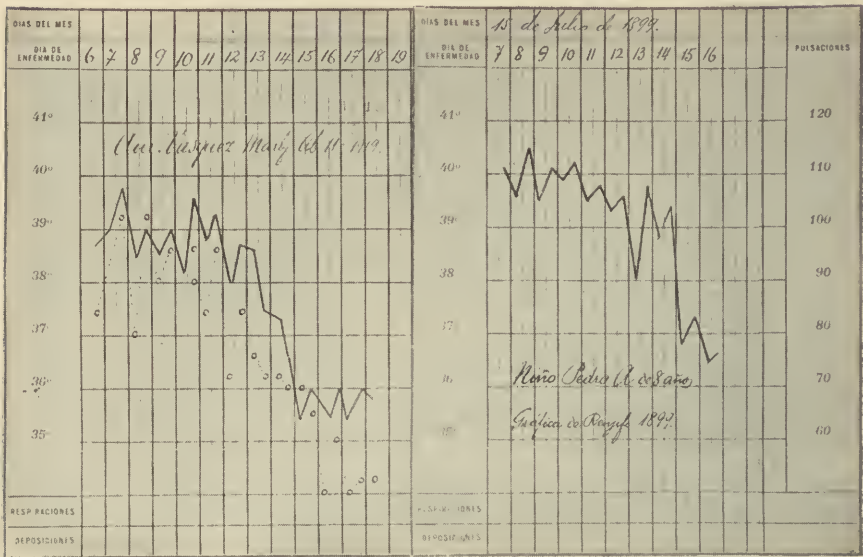 DIAS DEL MES
DIA DE ENFERMEDAD 6 7 8 9 10 11 12 13 14 15 16 17 18 19
41°
40°
39°
38°
37°
36°
35°
RESPIRACIONES
DEPOSICIONES
DIAS DEL MES 15 de Julio de 1899.
DIA DE ENFERMEDAD 7 8 9 10 11 12 13 14 15 16 PULSACIONES
41° 120
40° 110
39° 100
38° 90
37° 80
36 70
35° 60
Niño Pedro A. de 8 años
Gráfica de 1899.
DEPOSICIONES